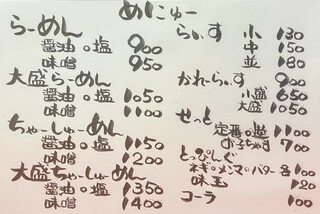 めにゅー
らーめん
醤油。塩 900
味噌 950
大盛らーめん
醤油。塩 1050
味噌 1100
ちゃーしゅーめん
醤油。塩 1150
味噌 1200
大盛ちゃーしゅーめん
醤油。塩 1350
味噌 1400
らいす 小 130
中 150
並 180
かれーらいす 900
小盛 650
大盛 1050
せっと
定番の並 1100
おこちゃま 700
とっぴんぐ
ネギ。メンマ。バター各 100
味玉 120
コーラ 100